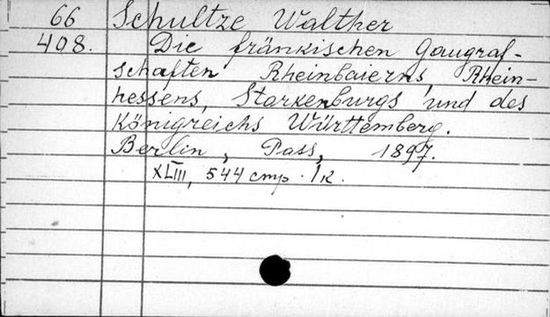 66 Schultze Walther
408. Die fränkischen Gaugraf-
schaften Rheinbaierns, Rhein-
hessens, Starkenburgs und des
Königreichs Württemberg.
Berlin, Pass, 1897.
XLIII, 544 стр. 1к.